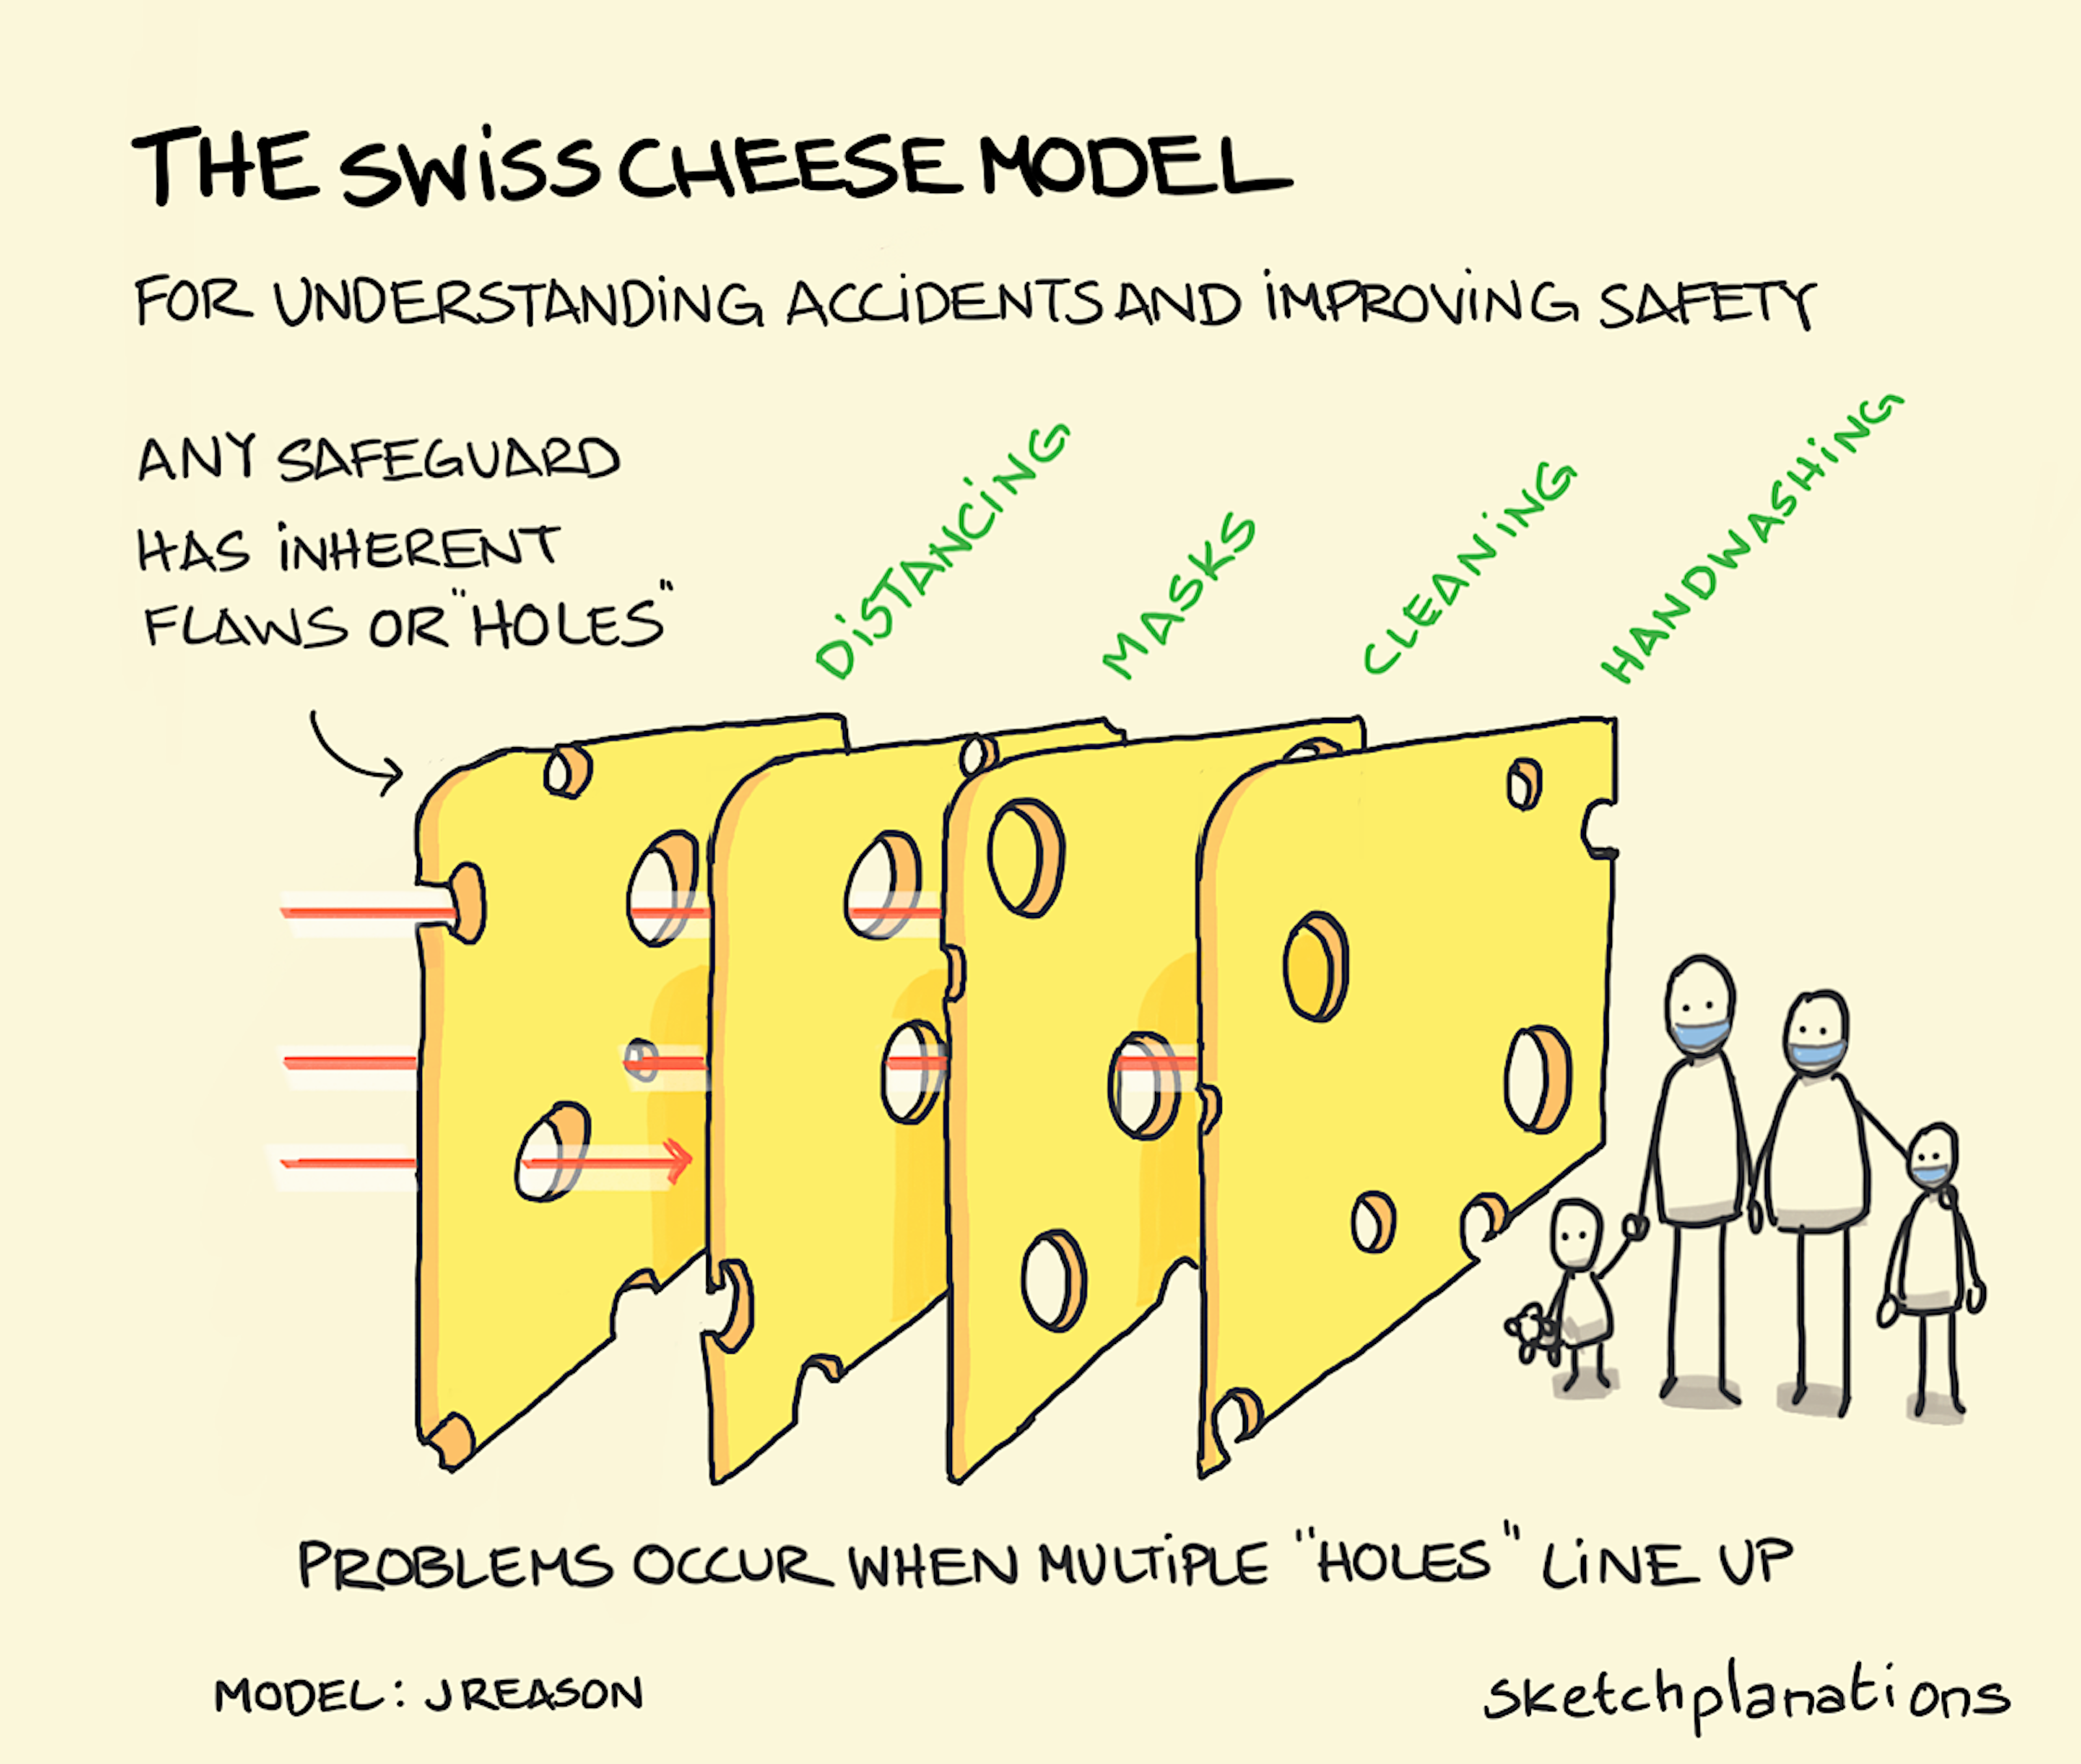 THE SWISS CHEESE MODEL
FOR UNDERSTANDING ACCIDENTS AND IMPROVING SAFETY
ANY SAFEGUARD
HAS INHERENT
FLAWS OR "HOLES"
DISTANCING
MASKS
CLEANING
HANDWASHING
PROBLEMS OCCUR WHEN MULTIPLE "HOLES" LINE UP
MODEL: J REASON
sketchplanations